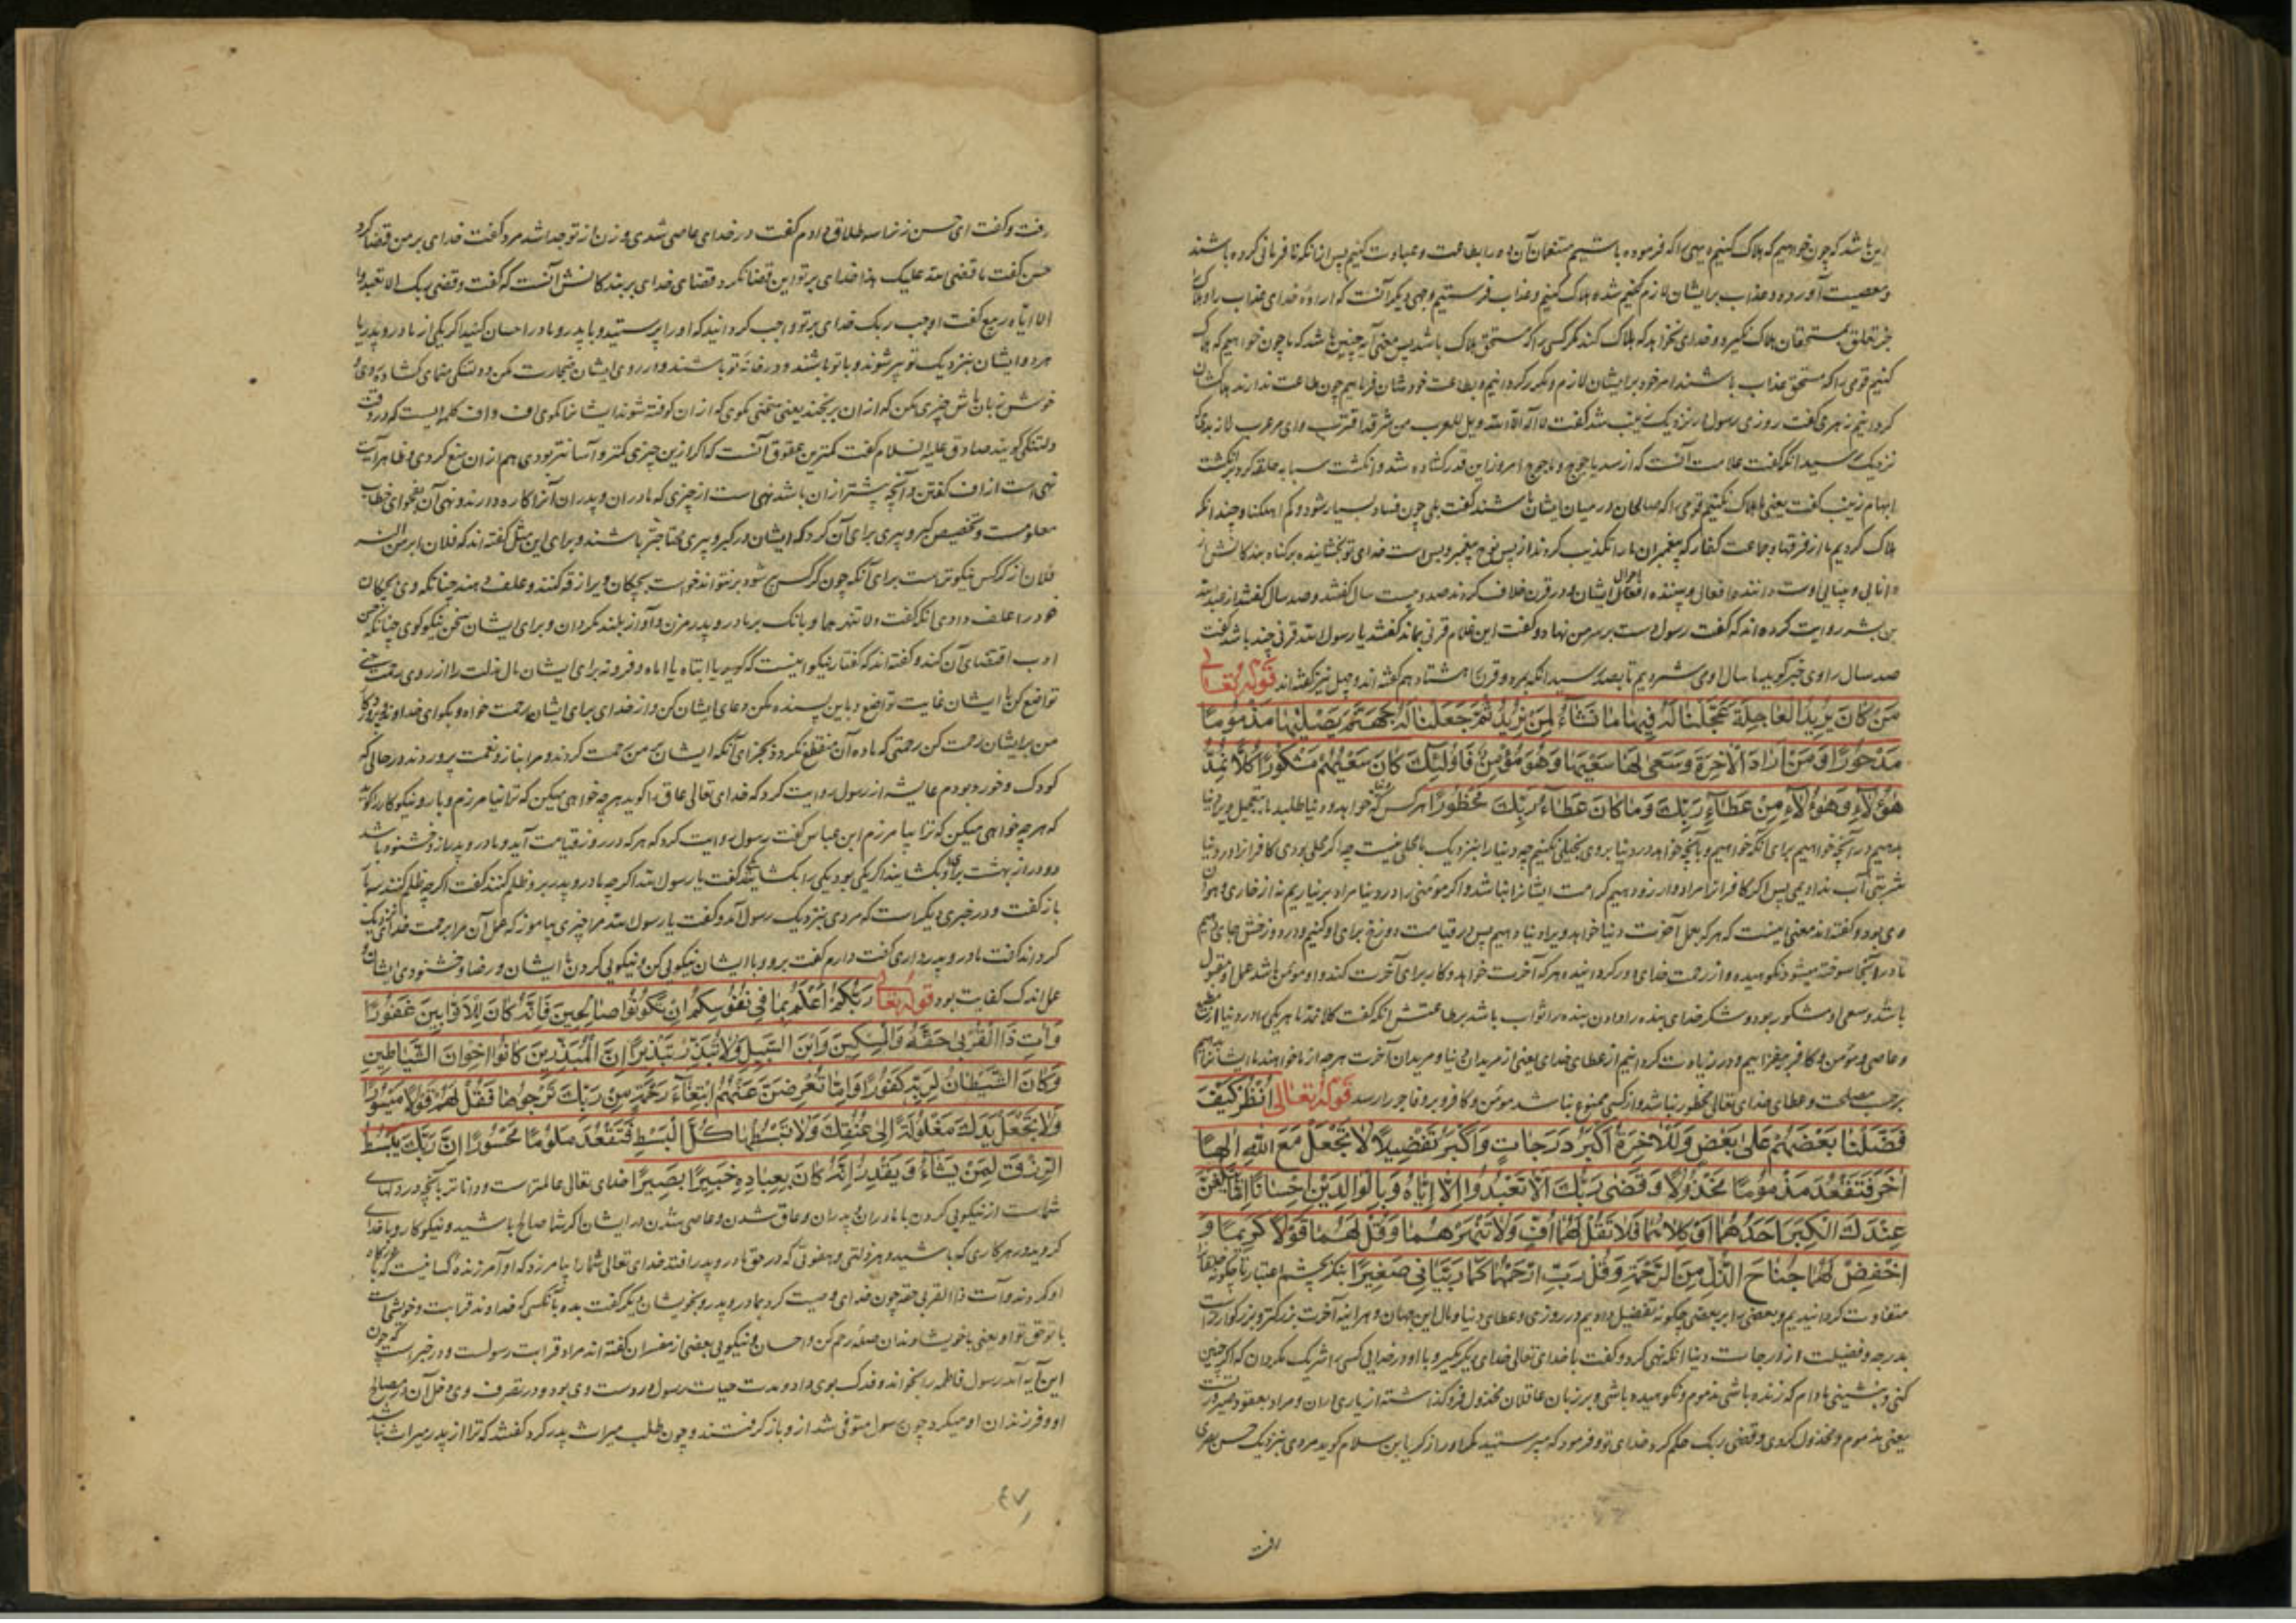 این باشد که چون خواهیم که هلاک کنیم دیهی را که فرموده باشیم متنعمان آن ده را بطاعت و عبادت کنیم پس ازانکه نافرمانی کرده باشند
و معصیت آورده و عذاب بر ایشان لازم کنیم شده هلاک کنیم و عذاب فرستیم وجهی دیگر آنست که اراده خدای عذاب را و هلاک
جز تعلق بمستحقان هلاک نگیرد و خدای نخواهد که هلاک کند مگر کسی را که مستحق هلاک باشد پس معنی آیه چنین باشد که ما چون خواهیم که هلاک
کنیم قومی را که مستحق عذاب باشند امر خود بر ایشان لازم و مکرر گردانیم و بطاعت خودشان فرمائیم چون طاعت ندارند هلاکشان
گردانیم زهری گفت روزی رسول در نزدیک زینب شد گفت لا اله الا الله ویل للعرب من شر قد اقترب وای مر عرب را از بدی که
نزدیک رسید آنگه گفت علامت آنست که از سد یاجوج و ماجوج امروز این قدر گشاده شد و انگشت سبابه حلقه کرد بر انگشت
ابهام زینب گفت یعنی ما هلاک نکنیم قومی را که صالحان در میان ایشان باشند گفت بلی چون فساد بسیار شود و کم اهلکنا و چند انکه
هلاک کردیم ما از فرقها و جماعت کفار که پیغمبران ما را تکذیب کردند از پس نوح پیغمبر و بس است خدای تو بخشاینده بر گناه بندگانش از
دانایی و بینایی اوست داننده افعال و بیننده احوال ایشان و در قرن خلاف کردند صد و بیست سال گفتند و صد سال گفتند از عبدالله
بن بشر روایت کرده اند که گفت رسول دست بر سر من نهاد و گفت این غلام قرنی بماند گفتند یا رسول الله قرنی چند باشد گفت
صد سال راوی خبر گوید ما سال او می شمردیم تا بصد رسید آنگه بمرد و قرن را هشتاد هم گفته اند و چهل نیز گفته اند قوله تعالی
مَنْ كَانَ يُرِيدُ الْعَاجِلَةَ عَجَّلْنَا لَهُ فِيهَا مَا نَشَاءُ لِمَنْ نُرِيدُ ثُمَّ جَعَلْنَا لَهُ جَهَنَّمَ يَصْلَيهَا مَذْمُومًا
مَدْحُورًا وَمَنْ أَرَادَ الْآخِرَةَ وَسَعَى لَهَا سَعْيَهَا وَهُوَ مُؤْمِنٌ فَأُولَئِكَ كَانَ سَعْيُهُمْ مَشْكُورًا كُلًّا نُمِدُّ
هَؤُلَاءِ وَهَؤُلَاءِ مِنْ عَطَاءِ رَبِّكَ وَمَا كَانَ عَطَاءُ رَبِّكَ مَحْظُورًا هر کس که خواهد و دنیا طلبد ما بتعجیل ویرا
بدهیم در آنچه خواهیم برای آنکه خواهیم و بآنچه خواهد در دنیا بر وی بخیلی نکنیم چه دنیا را بنزدیک ما محلی نیست چه اگر محلی بودی کافر را در دنیا
شربتی آب ندادیمی پس اگر کافر را مراد و آرزو دهیم کرامت ایشانرا نباشد و اگر مومنی را در دنیا مراد بر نیاریم نه از خواری و هوان
وی بود و گفته اند معنی اینست که هر که بعمل آخرت دنیا خواهد ویرا دنیا دهیم پس در قیامت دوزخ برای او کنیم و در دوزخش جای دهیم
تا در آنجا سوخته میشود نکوهیده و از رحمت خدای دور کرد انیده هر که آخرت خواهد و کار برای آخرت کند و او مومن باشد عمل او مقبول
باشد و سعی او مشکور بود و شکر خدای بنده را دادن بنده را ثواب باشد بر طاعتش آنکه گفت کلا نمد ما هر یکی را در دنیا از مطیع
و عاصی و مومن و کافر بیفزاییم و در زیادت گردانیم از عطای خدای یعنی از مریدان دنیا و مریدان آخرت هر چه از ما خواهند ما ایشانرا دهیم
بر حسب مصلحت و عطای خدای تعالی محظور نباشد و از کسی ممنوع نباشد مومن و کافر و بر و فاجر را رسد قوله تعالی اُنْظُرْ كَيْفَ
فَضَّلْنَا بَعْضَهُمْ عَلَى بَعْضٍ وَلَلْآخِرَةُ أَكْبَرُ دَرَجَاتٍ وَأَكْبَرُ تَفْضِيلًا لَا تَجْعَلْ مَعَ اللهِ إِلَهًا
آخَرَ فَتَقْعُدَ مَذْمُومًا مَخْذُولًا وَقَضَى رَبُّكَ أَلَّا تَعْبُدُوا إِلَّا إِيَّاهُ وَبِالْوَالِدَيْنِ إِحْسَانًا إِمَّا يَبْلُغَنَّ
عِنْدَكَ الْكِبَرَ أَحَدُهُمَا أَوْ كِلَاهُمَا فَلَا تَقُلْ لَهُمَا أُفٍّ وَلَا تَنْهَرْهُمَا وَقُلْ لَهُمَا قَوْلًا كَرِيمًا وَ
اخْفِضْ لَهُمَا جَنَاحَ الذُّلِّ مِنَ الرَّحْمَةِ وَقُلْ رَبِّ ارْحَمْهُمَا كَمَا رَبَّيَانِي صَغِيرًا بنگر بچشم اعتبار تا چگونه خلقان
متفاوت گردانیدیم و بعضی را بر بعضی چگونه تفضیل دادیم در روزی و عطای دنیا و مال این جهان و هر اینه آخرت بزرگتر و بزرگوارتر است
بدرجه و فضیلت از درجات دنیا آنگه نهی کرد و گفت با خدای تعالی خدای دیگر مگیر و با او در خدایی کسی را شریک مگردان که اگر چنین
کنی و بنشینی مادام که زنده باشی مذموم و نکوهیده باشی و بر زبان عاقلان مخذول و فرو گذاشته از یاری ایران و مراد بقعود صیرورت
یعنی مذموم و مخذول گردی و قضی ربک حکم کرد خدای تو و فرمود که مپرستید مگر او را زکریا بن سلام گوید مردی بنزدیک حسن بصری
رفت
رفت و گفت ای حسن زنرا سه طلاق دادم گفت در خدای عاصی شدی و زن از تو جدا شد مرد گفت خدای بر من قضا کرد
حسن گفت ما قضی الله علیک هذا خدای بر تو این قضا نکرد قضای خدای بر بندگانش آنست که گفت و قضی ربک الا تعبدوا
الا ایاه ربیع گفت اوجب ربک خدای بر تو واجب گردانید که او را پرستید و با پدر و مادر احسان کنید اگر یکی از مادر و پدر یا
هر دو ایشان بنزدیک تو پیر شوند و با تو باشند و در خانه تو باشند در روی ایشان ضجارت مکن و دلتنگی منمای گشاده روی و
خوش زبان باش چیزی مکن که از ان برنجند یعنی سخنی مگوی که از ان کوفته شوند ایشانرا مگوی اف و اف کلمه ایست که در وقت
دلتنگی گویند صادق علیه السلام گفت کمترین عقوق آنست که اگر ازین چیزی کمتر و آسانتر بودی هم از ان منع کردی و ظاهر آیت
نهی است از اف گفتن و آنچه بیشتر از ان باشد نهی است از چیزی که مادران و پدران آنرا کاره دارند و نهی آن بفحوای خطاب
معلومست و تخصیص کبر و پیری برای آن کرد که ایشان در کبر و پیری محتاجتر باشند و برای این مثل گفته اند که فلان ابر من النسر
فلان از کرکس نیکوتر است برای آنکه چون کرکس پیر شود برنتواند خواست بچگان ویرا زقه کنند و علف دهند چنانکه وی بچگان
خود را علف دادی آنگه گفت ولا تنهرهما و بانگ بر مادر و پدر مزن و آواز بلند مگردان و برای ایشان سخن نیکو گوی چنانکه حسن
ادب اقتضای آن کند و گفته اند که گفتار نیکو اینست که گوید یا ابتاه یا اماه و فروتر برای ایشان بال مذلت را از روی رحمت یعنی
تواضع کن با ایشان غایت تواضع و باین بسنده مکن دعای ایشان کن و از خدای برای ایشان رحمت خواه و بگو ای خداوند و پروردگار
من بر ایشان رحمت کن رحمتی که ماده آن منقطع نگردد بجزای آنکه ایشان بر من رحمت کردند و مرا بناز و نعمت پروردند در حالی که
کودک و خورد بودم عایشه از رسول روایت کرد که خدای تعالی عاق را گوید هر چه خواهی میکن که ترا نیامرزم و بار و نیکوکار را گوید
که هر چه خواهی میکن که ترا بیامرزم ابن عباس گفت رسول روایت کرد که هر که در روز قیامت آید و مادر و پدر از و خشنود باشد
دو در از بهشت برای او بگشایند اگر یکی بود یکی را بگشایند گفت یا رسول الله اگر چه مادر و پدر بر و ظلم کنند گفت اگر چه ظلم کنند سه بار
باز گفت و در خبری دیگر است که مردی بنزدیک رسول آمد و گفت یا رسول الله مرا چیزی بیاموز که عمل آن مرا برحمت خدای نزدیک
گرداند گفت مادر و پدر داری گفت دارم گفت برو و با ایشان نیکویی کن و نیکویی کردن با ایشان و رضا و خشنودی ایشان و
عمل اندک کفایت بود قوله تعالی رَبُّكُمْ أَعْلَمُ بِمَا فِي نُفُوسِكُمْ إِنْ تَكُونُوا صَالِحِينَ فَإِنَّهُ كَانَ لِلْأَوَّابِينَ غَفُورًا
وَآتِ ذَا الْقُرْبَى حَقَّهُ وَالْمِسْكِينَ وَابْنَ السَّبِيلِ وَلَا تُبَذِّرْ تَبْذِيرًا إِنَّ الْمُبَذِّرِينَ كَانُوا إِخْوَانَ الشَّيَاطِينِ
وَكَانَ الشَّيْطَانُ لِرَبِّهِ كَفُورًا وَإِمَّا تُعْرِضَنَّ عَنْهُمُ ابْتِغَاءَ رَحْمَةٍ مِنْ رَبِّكَ تَرْجُوهَا فَقُلْ لَهُمْ قَوْلًا مَيْسُورًا
وَلَا تَجْعَلْ يَدَكَ مَغْلُولَةً إِلَى عُنُقِكَ وَلَا تَبْسُطْهَا كُلَّ الْبَسْطِ فَتَقْعُدَ مَلُومًا مَحْسُورًا إِنَّ رَبَّكَ يَبْسُطُ
الرِّزْقَ لِمَنْ يَشَاءُ وَيَقْدِرُ إِنَّهُ كَانَ بِعِبَادِهِ خَبِيرًا بَصِيرًا خدای تعالی عالمتر است و داناتر بآنچه در دلهای
شماست از نیکویی کردن با مادران و پدران و عاق شدن و عاصی شدن در ایشان اگر شما صالح باشید و نیکوکار و با خدای
گروید و در هر کاری که باشید و هر زلتی و هفوتی که در حق مادر و پدر افتد خدای تعالی شما را بیامرزد که او آمرزنده کسانیست که با درگاه
او گردند و آت ذا القربی حقه چون خدای وصیت کرد بمادر و پدر و بخویشان دیگر گفت بده بآنکس که خداوند قرابت و خویشی است
با تو حق تو او یعنی با خویشاوندان صله رحم کن و احسان و نیکویی بعضی از مفسران گفته اند مراد قرابت رسولست و در خبر است که چون
این آیه آمد رسول فاطمه را بخواند و فدک بوی داد و مدت حیات رسول در دست وی بود و در تصرف وی و دخل آن در مصالح
او و فرزندان او میکرد چون رسول متوفی شد از و باز گرفتند و چون طلب میراث پدر کرد گفتند که ترا از پدر میراث نباشد
٤٧